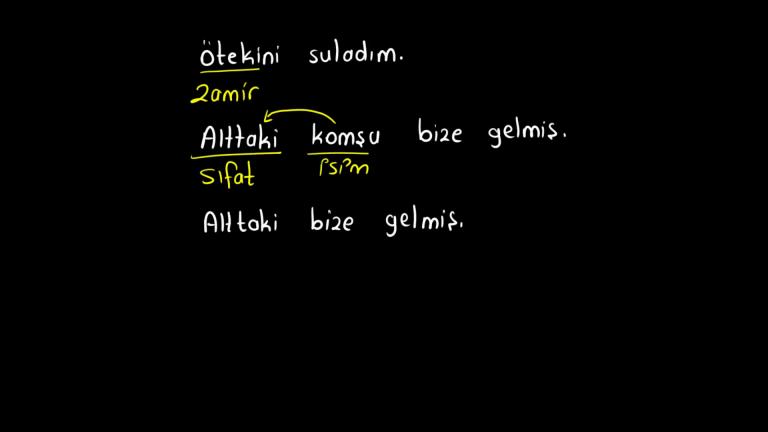 Ötekini suladım.
zamir
Alttaki komşu bize gelmiş.
sıfat isim
Alttaki bize gelmiş.